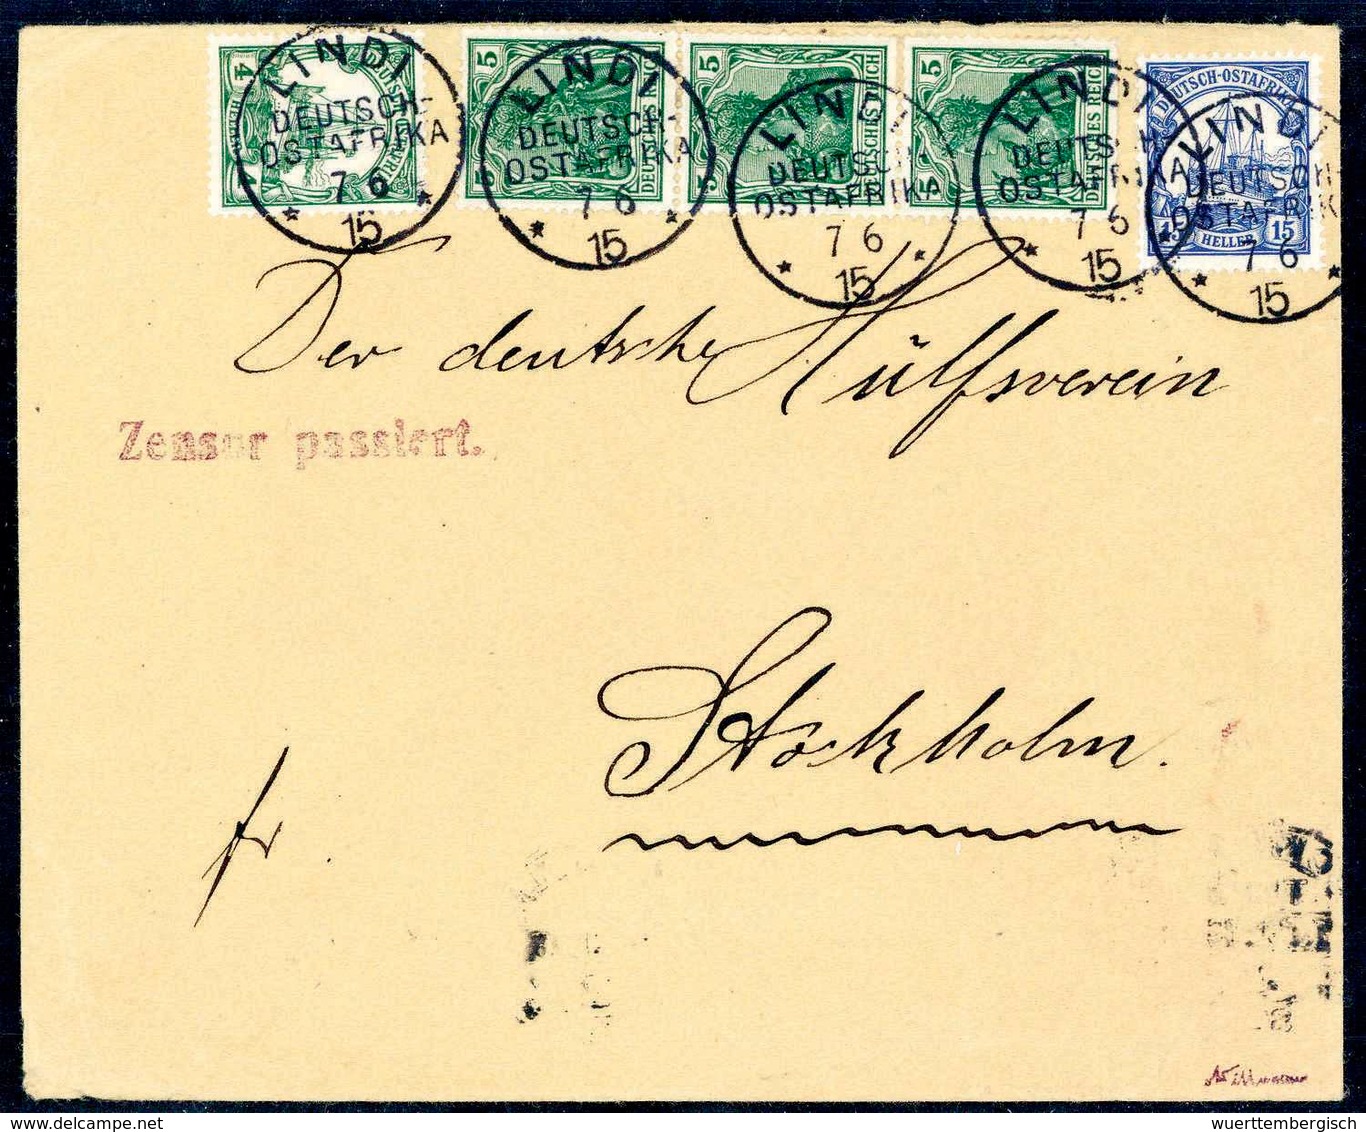 LINDI
DEUTSCH-
OSTAFRIKA
7 6
15
LINDI
DEUTSCH-
OSTAFRIKA
7 6
15
LINDI
DEUTSCH-
OSTAFRIKA
7 6
15
LINDI
DEUTSCH-
OSTAFRIKA
7 6
15
LINDI
DEUTSCH-
OSTAFRIKA
7 6
15
4
5
DEUTSCHES REICH
5
5
DEUTSCHES REICH
5
5
DEUTSCHES REICH
DEUTSCH-OSTAFRIKA
15 HELLER 15
Der deutsche Hülfsverein
Zensur passiert.
Stockholm.
fr
wuerttembergisch